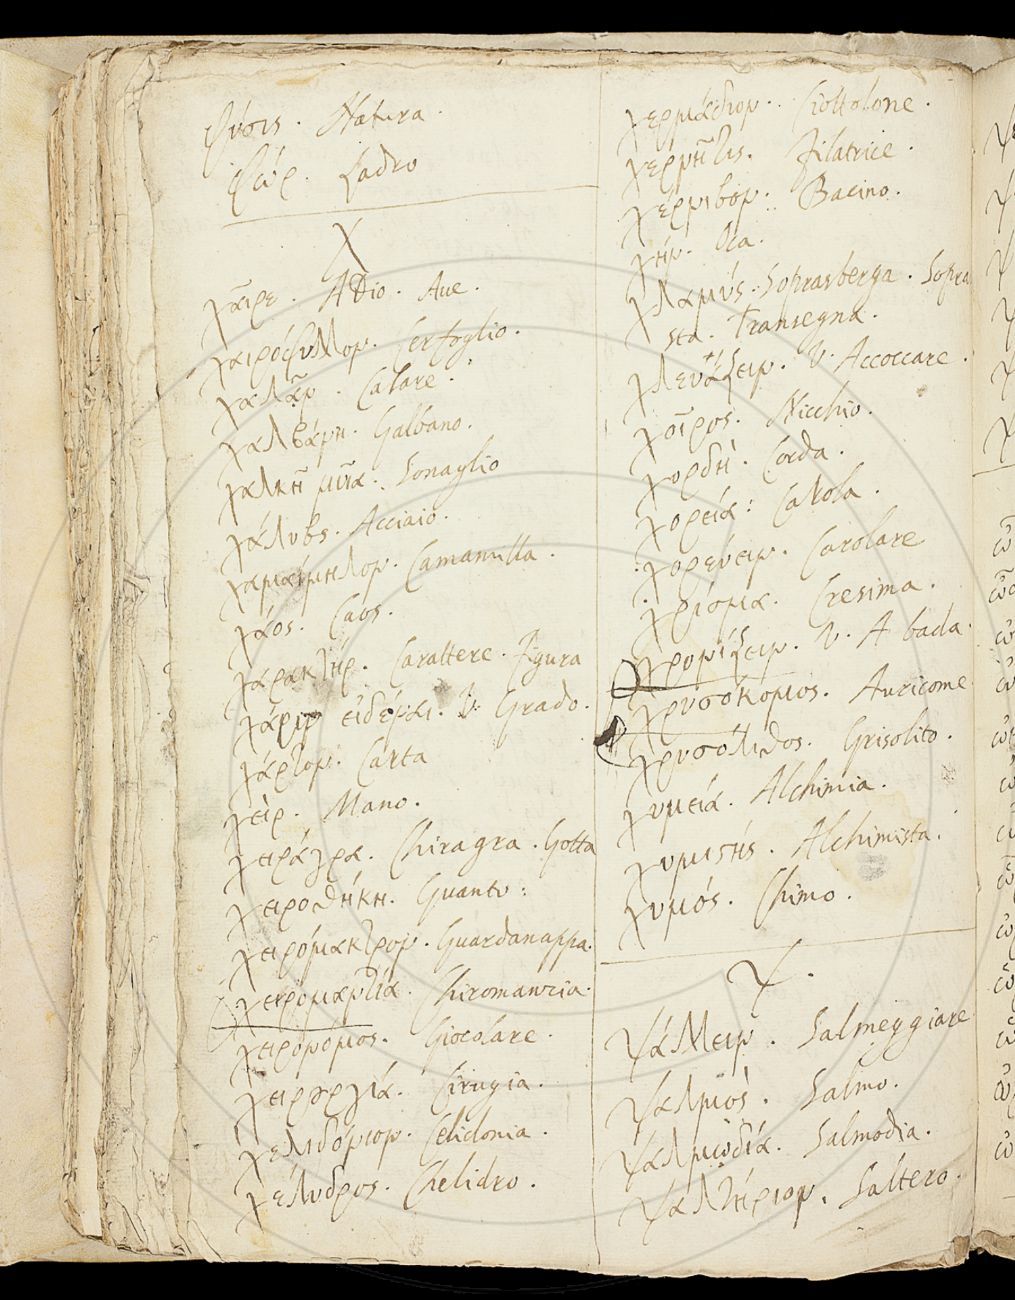 φύσις. Natura.
φώρ. Ladro
Χ
χαῖρε. ADio. Aue.
χαιρόφυλλον. Cerfoglio.
χαλᾶν. Calare.
χαλβάνη. Galbano.
χαλκῆ μῦια. Sonaglio
χάλυβς. Acciaio.
χαμαίμηλον. Camamilla.
χάος. Caos.
χαρακτήρ. Carattere. Figura
χάριν εἰδέναι. V. Grado.
χάρτον. Carta
χείρ. Mano.
χειράγρα. Chiragra. Gotta
χειροθήκη. Guanto:
χειρόμακτρον. Guardanappa.
χειρομαντία. Chiromanzia.
χειρονόμος. Giocolare.
χειρουργία. Cirugia.
χελιδόνιον. Celidonia.
χέλυδρος. Chelidro.
χερμάδιον. Ciottolone.
χερνῆτις. Filatrice.
χέρνιβον. Bacino.
χήν. Oca.
χλαμύς. Soprasberga. Sopra
sta. Transegna.
χλευάζειν. V. Accoccare.
χοῖρος. Nicchio.
χορδή. Corda.
χορεία: Carola.
χορεύειν. Carolare
χρίσμα. Cresima.
χρονίζειν. V. A bada.
χρυσόκομος. Auricome
χρυσόλιθος. Grisolito.
χυμεία. Alchimia.
χυμιστής. Alchimista.
χυμός. Chimo.
Ψ.
ψάλλειν. Salmeggiare
ψαλμός. Salmo.
ψαλμῳδία. Salmodia.
ψαλτήριον. Saltero.